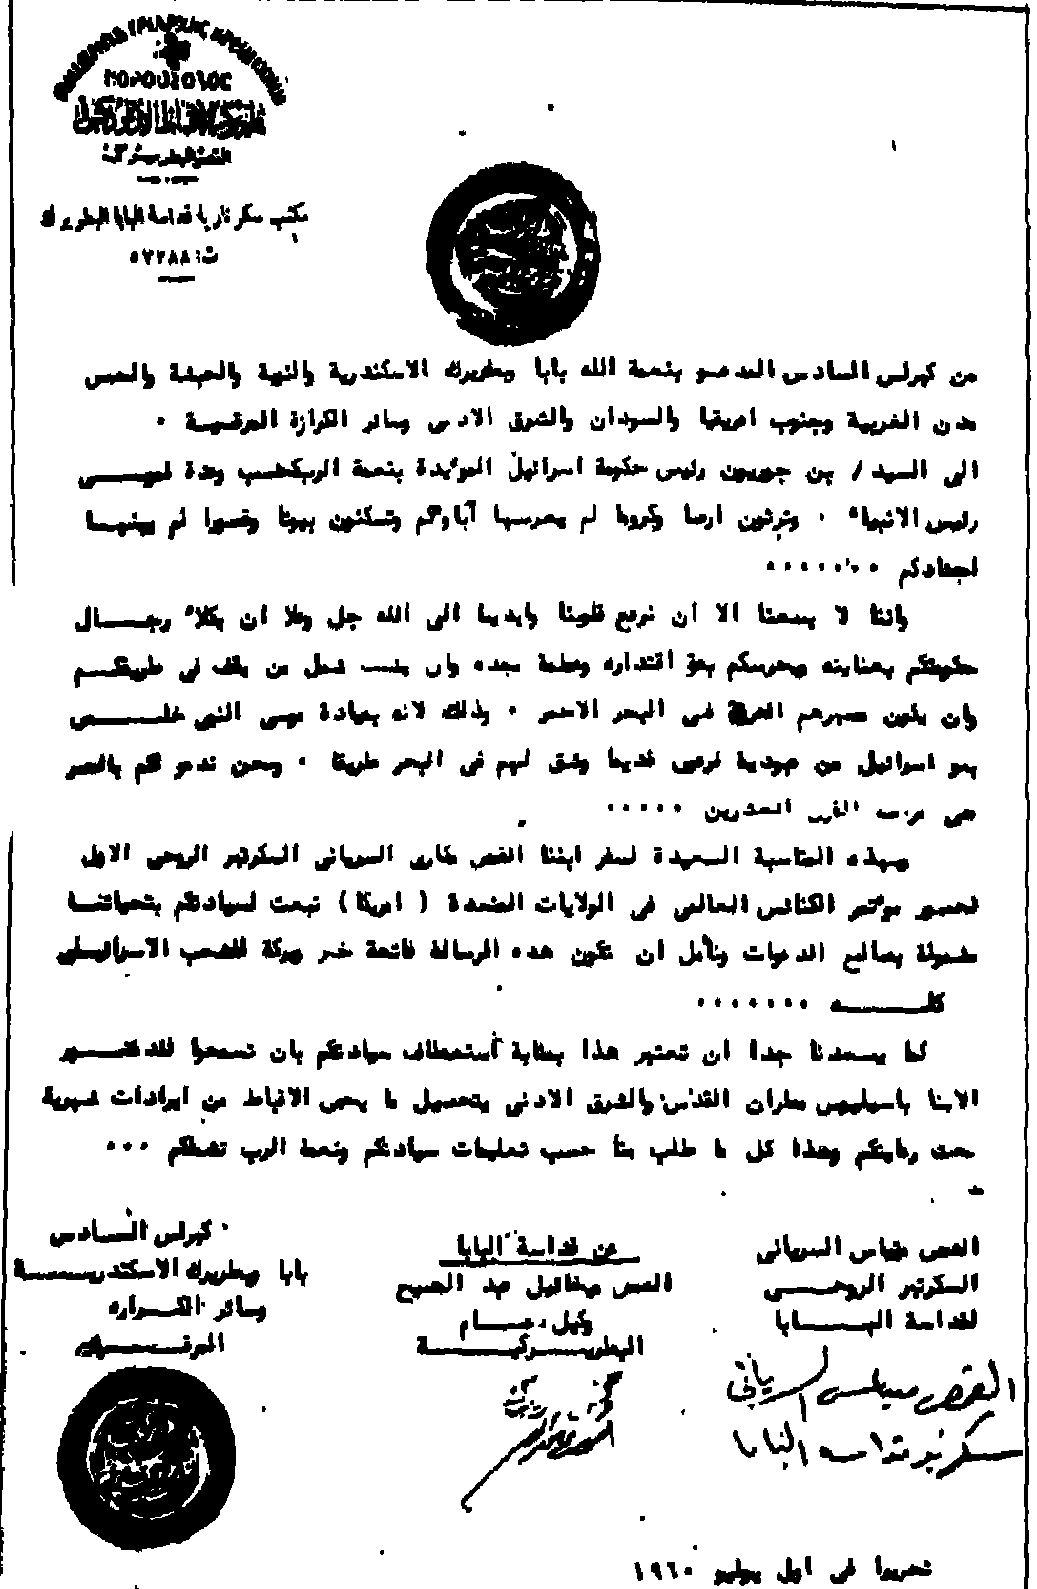 مكتب سكرتارية قداسة البابا البطريرك
ت: ٥٧٢٨٨
من كيرلس السادس المدعو بنعمة الله بابا وبطريرك الاسكندرية والنوبة والحبشة والخمس
مدن الغربية وجنوب افريقيا والسودان والشرق الادنى وسائر الكرازة المرقسية ٠
الى السيد / بن جوريون رئيس حكومة اسرائيل المؤيدة بنعمة الرب وعدة لموسى
رئيس الانبياء ٠ وترثون ارضا وكروما لم يغرسها آباؤكم وتسكنون بيوتا وقصورا لم يبنيها
اجدادكم ٠٠٠٠٠٠٠
واننا لا يسعنا الا ان نرفع قلوبنا وايدينا الى الله جل وعلا ان يكلاء رجال
حكومتكم بعنايته ويحرسكم بقوة اقتداره وعظمة مجده وان يشتت شمل من يقف في طريقكم
وان يكون مصيرهم الغرق في البحر الاحمر ٠ وذلك لانه بقيادة موسى النبي خلص
بنو اسرائيل من عبودية فرعون قديما وشق لهم في البحر طريقا ٠ ونحن ندعو لكم بالنصر
القرن العشرين ٠٠٠٠٠
وبهذه المناسبة السعيدة لسفر ابننا القمص مكارى السريانى السكرتير الروحى الاول
لحضور مؤتمر الكنائس العالمى فى الولايات المتحدة ( امريكا ) نبعث لسيادتكم بتحياتنا
مشمولة بصالح الدعوات ونأمل ان تكون هذه الرسالة فاتحة خير وبركة للشعب الاسرائيلى
كله ٠٠٠٠٠٠٠
كما يسعدنا جدا ان تعتبر هذا بمثابة أستعطاف سيادتكم بان تسمحوا
الانبا باسيليوس مطران القدس والشرق الادنى بتحصيل ما يخص الاقباط من ايرادات شهرية
تحت رعايتكم وهذا كل ما طلب منا حسب تعليمات سيادتكم ونعمة الرب تشملكم ٠٠٠
القمص السريانى
السكرتير الروحى
لقداسة البابا
عن قداسة البابا
القمص ميخائيل عبد المسيح
وكيل عام
البطريركية
كيرلس السادس
بابا وبطريرك الاسكندرية
وسائر الكرازه
المرقسيه
القمص السريانى
سكرتير قداسه البابا
تحريرا فى اول يوليو ١٩٦٠